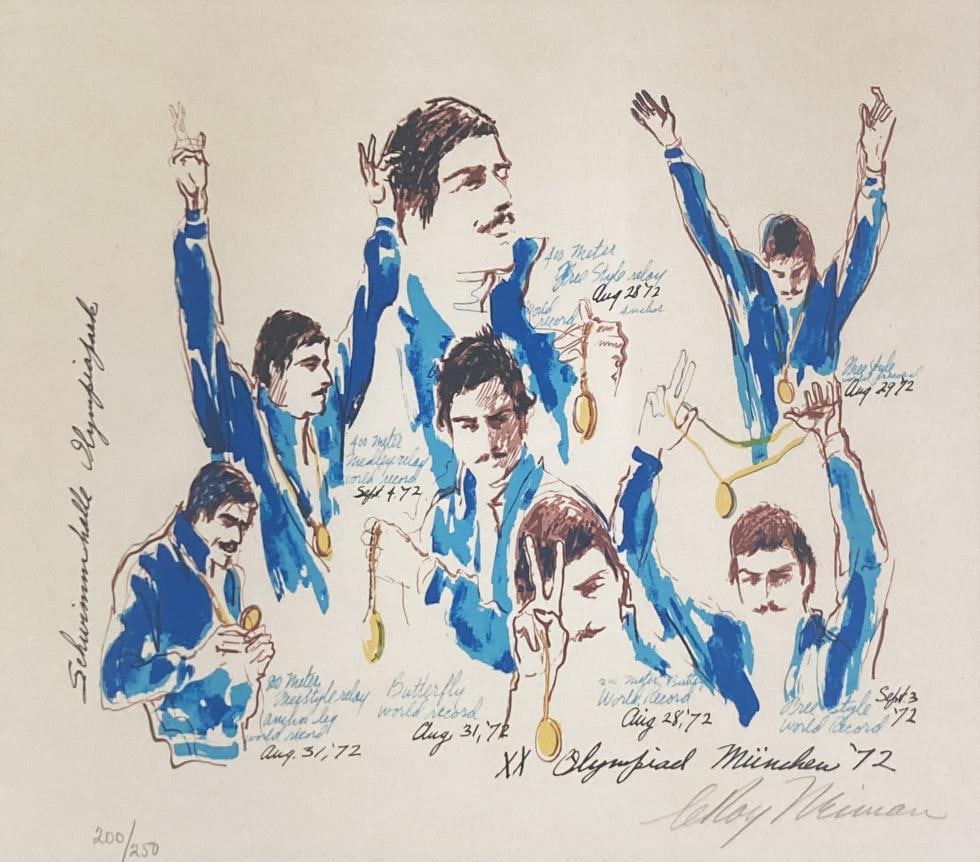 Schwimmhalle Olympiapark
400 Meter
Free Style relay
Aug 28 '72
World
record
anchor
Free Style
world record
Aug 29 '72
400 Meter
Medley relay
world record
Sept. 4. '72
800 Meter
Freestyle relay
anchor leg
world record
Aug. 31, '72
Butterfly
world record
Aug. 31, '72
200 Meter Butter
World Record
Aug 28, '72
Free Style
World Record
Sept. 3
'72
XX Olympiad München '72
LeRoy Neiman
200/250